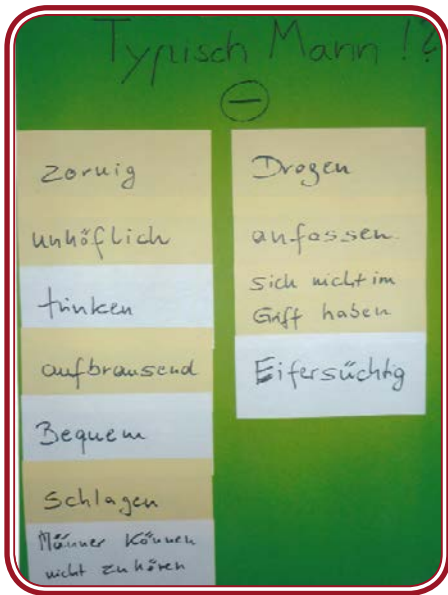 Typisch Mann !?
−
zornig
unhöflich
trinken
aufbrausend
Bequem
Schlagen
Männer Können
nicht zuhören
Drogen
anfassen
sich nicht im
Griff haben
Eifersüchtig